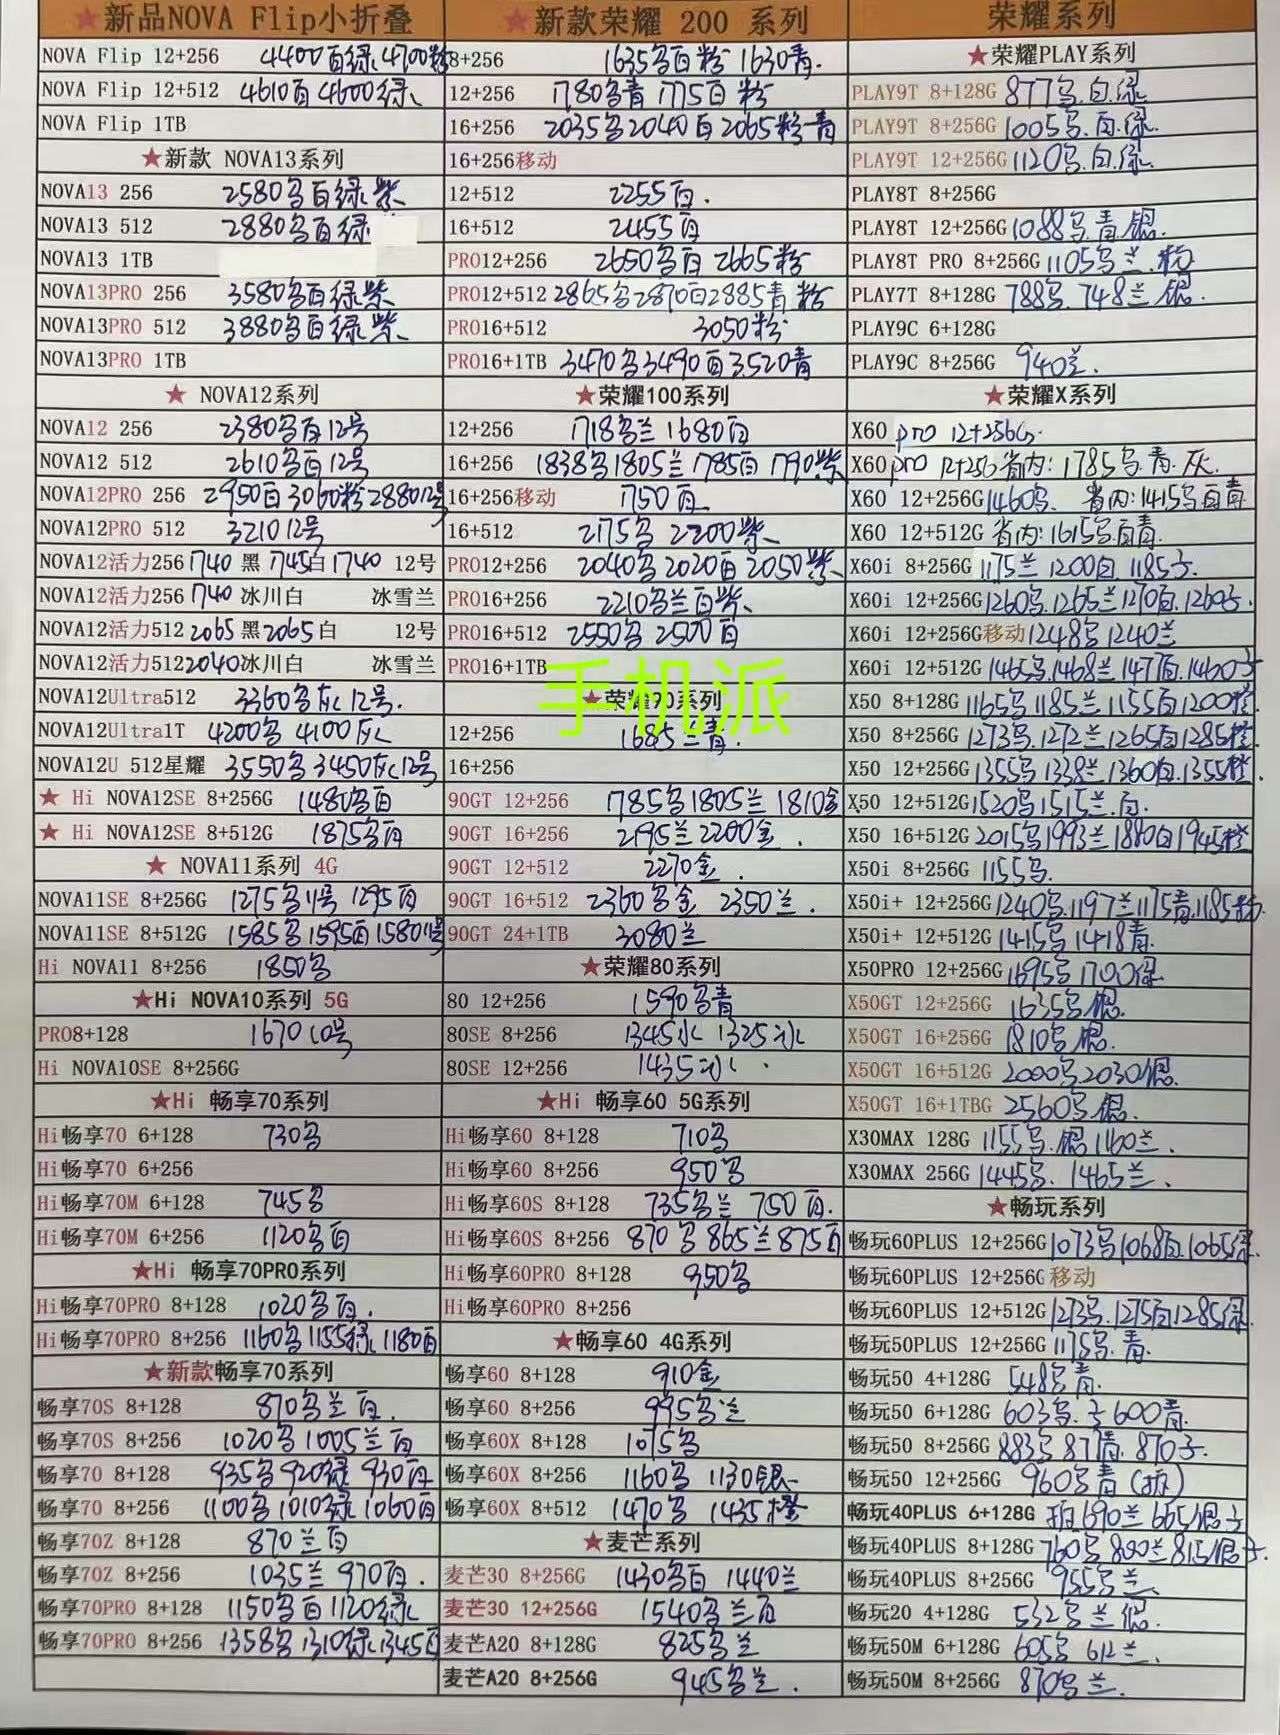 ★新品NOVA Flip小折叠
NOVA Flip 12+256 4400百绿 4700粉
NOVA Flip 12+512 4610百 4600绿
NOVA Flip 1TB
★新款 NOVA13系列
NOVA13 256 2580名百绿紫
NOVA13 512 2880名百绿
NOVA13 1TB
NOVA13PRO 256 3580名百绿紫
NOVA13PRO 512 3880名百绿紫
NOVA13PRO 1TB
★ NOVA12系列
NOVA12 256 2380名百12号
NOVA12 512 2610名百12号
NOVA12PRO 256 2950百3060粉288012号
NOVA12PRO 512 3210 12号
NOVA12活力256 1740 黑 1745白 1740 12号
NOVA12活力256 1740 冰川白 冰雪兰
NOVA12活力512 2065 黑 2065 白 12号
NOVA12活力512 2040 冰川白 冰雪兰
NOVA12Ultra512 3360名灰12号.
NOVA12Ultra1T 4200名 4100灰
NOVA12U 512星耀 3550名 3450灰12号
★ Hi NOVA12SE 8+256G 1480名百
★ Hi NOVA12SE 8+512G 1875名百
★ NOVA11系列 4G
NOVA11SE 8+256G 1275名11号 1295百
NOVA11SE 8+512G 1585名1595百158011号
Hi NOVA11 8+256 1850名
★Hi NOVA10系列 5G
PRO8+128 1670 10号
Hi NOVA10SE 8+256G
★Hi 畅享70系列
Hi畅享70 6+128 730名
Hi畅享70 6+256
Hi畅享70M 6+128 745名
Hi畅享70M 6+256 1120名百
★Hi 畅享70PRO系列
Hi畅享70PRO 8+128 1020名百.
Hi畅享70PRO 8+256 1160名1155绿1180百
★新款畅享70系列
畅享70S 8+128 870名兰百.
畅享70S 8+256 1020名1005兰百
畅享70 8+128 935名920绿930百
畅享70 8+256 1100名1010绿1060百
畅享70Z 8+128 870兰百
畅享70Z 8+256 1035兰 970百.
畅享70PRO 8+128 1150名百1120绿
畅享70PRO 8+256 1358名1310绿1345百
★新款荣耀 200 系列
8+256 1635名百粉 1630青.
12+256 1780名青 1775百粉
16+256 2035名2040百2065粉青
16+256移动
12+512 2255百.
16+512 2455百
PRO12+256 2650名百 2665粉
PRO12+512 2865名2870百2885青粉
PRO16+512 3050粉
PRO16+1TB 3470名3490百3520青
★荣耀100系列
12+256 1718名兰 1680百
16+256 1838名1805兰1785百1790紫
16+256移动 1750百.
16+512 2175名 2200紫
PRO12+256 2040名2020百2050紫
PRO16+256 2210名兰百紫
PRO16+512 2550名 2500百
PRO16+1TB
手机派
★荣耀90系列
12+256 1685兰青.
16+256
90GT 12+256 1785名1805兰 1810金
90GT 16+256 2195兰2200金.
90GT 12+512 2270金.
90GT 16+512 2360名金 2350兰.
90GT 24+1TB 3080兰
★荣耀80系列
80 12+256 1590名青
80SE 8+256 1345水 1325冰
80SE 12+256 1435冰
★Hi 畅享60 5G系列
Hi畅享60 8+128 710名
Hi畅享60 8+256 950名
Hi畅享60S 8+128 735名兰 750百.
Hi畅享60S 8+256 870名865兰875百
Hi畅享60PRO 8+128 950名
Hi畅享60PRO 8+256
★畅享60 4G系列
畅享60 8+128 910金
畅享60 8+256 995名兰
畅享60X 8+128 1075名
畅享60X 8+256 1160名 1130银
畅享60X 8+512 1470名 1435橙
★麦芒系列
麦芒30 8+256G 1430名百 1440兰
麦芒30 12+256G 1540名兰百
麦芒A20 8+128G 825名兰
麦芒A20 8+256G 945名兰.
荣耀系列
★荣耀PLAY系列
PLAY9T 8+128G 877名.白.绿
PLAY9T 8+256G 1005名.百.绿.
PLAY9T 12+256G 1120名.白.绿.
PLAY8T 8+256G
PLAY8T 12+256G 1088名青银.
PLAY8T PRO 8+256G 1105名兰.粉
PLAY7T 8+128G 788名.748兰 银.
PLAY9C 6+128G
PLAY9C 8+256G 940兰.
★荣耀X系列
X60 pro 12+256G.
X60 pro 12+256省内: 1785名.青.灰.
X60 12+256G 1460名. 省内:1415名百青.
X60 12+512G 省内:1615名百青.
X60i 8+256G 1175兰1200白.1185子.
X60i 12+256G 1260名.1265兰1270百.1260子.
X60i 12+256G移动 1248名1240兰
X60i 12+512G 1465名.1468兰1477百.1460子
X50 8+128G 1165名1185兰1155百1200橙
X50 8+256G 1273名.1272兰1265百1285橙
X50 12+256G 1355名1338兰1360白.1355橙.
X50 12+512G 1520名1515兰.百.
X50 16+512G 2015名1993兰1880白1945橙
X50i 8+256G 1155名.
X50i+ 12+256G 1240名.1197兰1175青.1185粉
X50i+ 12+512G 1415名1418青.
X50PRO 12+256G 1695名1700绿
X50GT 12+256G 1635名银.
X50GT 16+256G 1810名银.
X50GT 16+512G 2000名2030银.
X50GT 16+1TBG 2560名银.
X30MAX 128G 1155名.银1160兰.
X30MAX 256G 1445名. 1465兰.
★畅玩系列
畅玩60PLUS 12+256G 1073名1068百.1065绿
畅玩60PLUS 12+256G移动
畅玩60PLUS 12+512G 1273名.1275百1285绿
畅玩50PLUS 12+256G 1175名.青.
畅玩50 4+128G 548名青.
畅玩50 6+128G 603名.子600青.
畅玩50 8+256G 883名871青.870子.
畅玩50 12+256G 960名青(拆)
畅玩40PLUS 6+128G 690兰665银子
畅玩40PLUS 8+128G 760名800兰815银子.
畅玩40PLUS 8+256G 955名兰
畅玩20 4+128G 532名兰银.
畅玩50M 6+128G 605名 612兰.
畅玩50M 8+256G 870名兰.